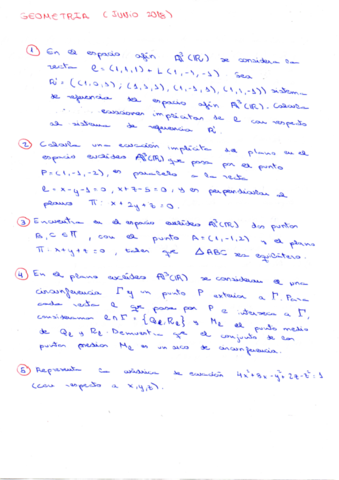 GEOMETRIA (JUNIO 2018)
1 En el espacio afín A³(R) se considera la
recta l = (1,1,1) + L(1,-1,-1). Sea
R' = {(1,0,1); (1,1,1), (1,-1,1), (1,1,-1)} sistema
de referencia del espacio afín A³(R). Calcula
ecuaciones implícitas de l con respecto
al sistema de referencia R'.
2 Calcula una ecuación implícita del plano en el
espacio euclídeo A³(R) que pasa por el punto
P = (1,-1,-2), es paralelo a la recta
l = x-y-1=0, x+z-5=0, y es perpendicular al
plano π: x+2y+z=0.
3 Encuentra en el espacio euclídeo A³(R) dos puntos
B, C ∈ π, con el punto A = (1,-1,2) y el plano
π: x+y+z=0, tales que △ABC sea equilátero.
4 En el plano euclídeo A²(R) se consideran una
circunferencia Γ y un punto P exterior a Γ. Para
cada recta l que pasa por P e interseca a Γ,
consideramos l∩Γ = {Qℓ, Rℓ} y Mℓ el punto medio
de Qℓ y Rℓ. Demuestra que el conjunto de los
puntos medios Mℓ es un arco de circunferencia.
5 Representa la cuádrica de ecuación 4x²+8x-y²+2z-z²=1
(con respecto a x,y,z).